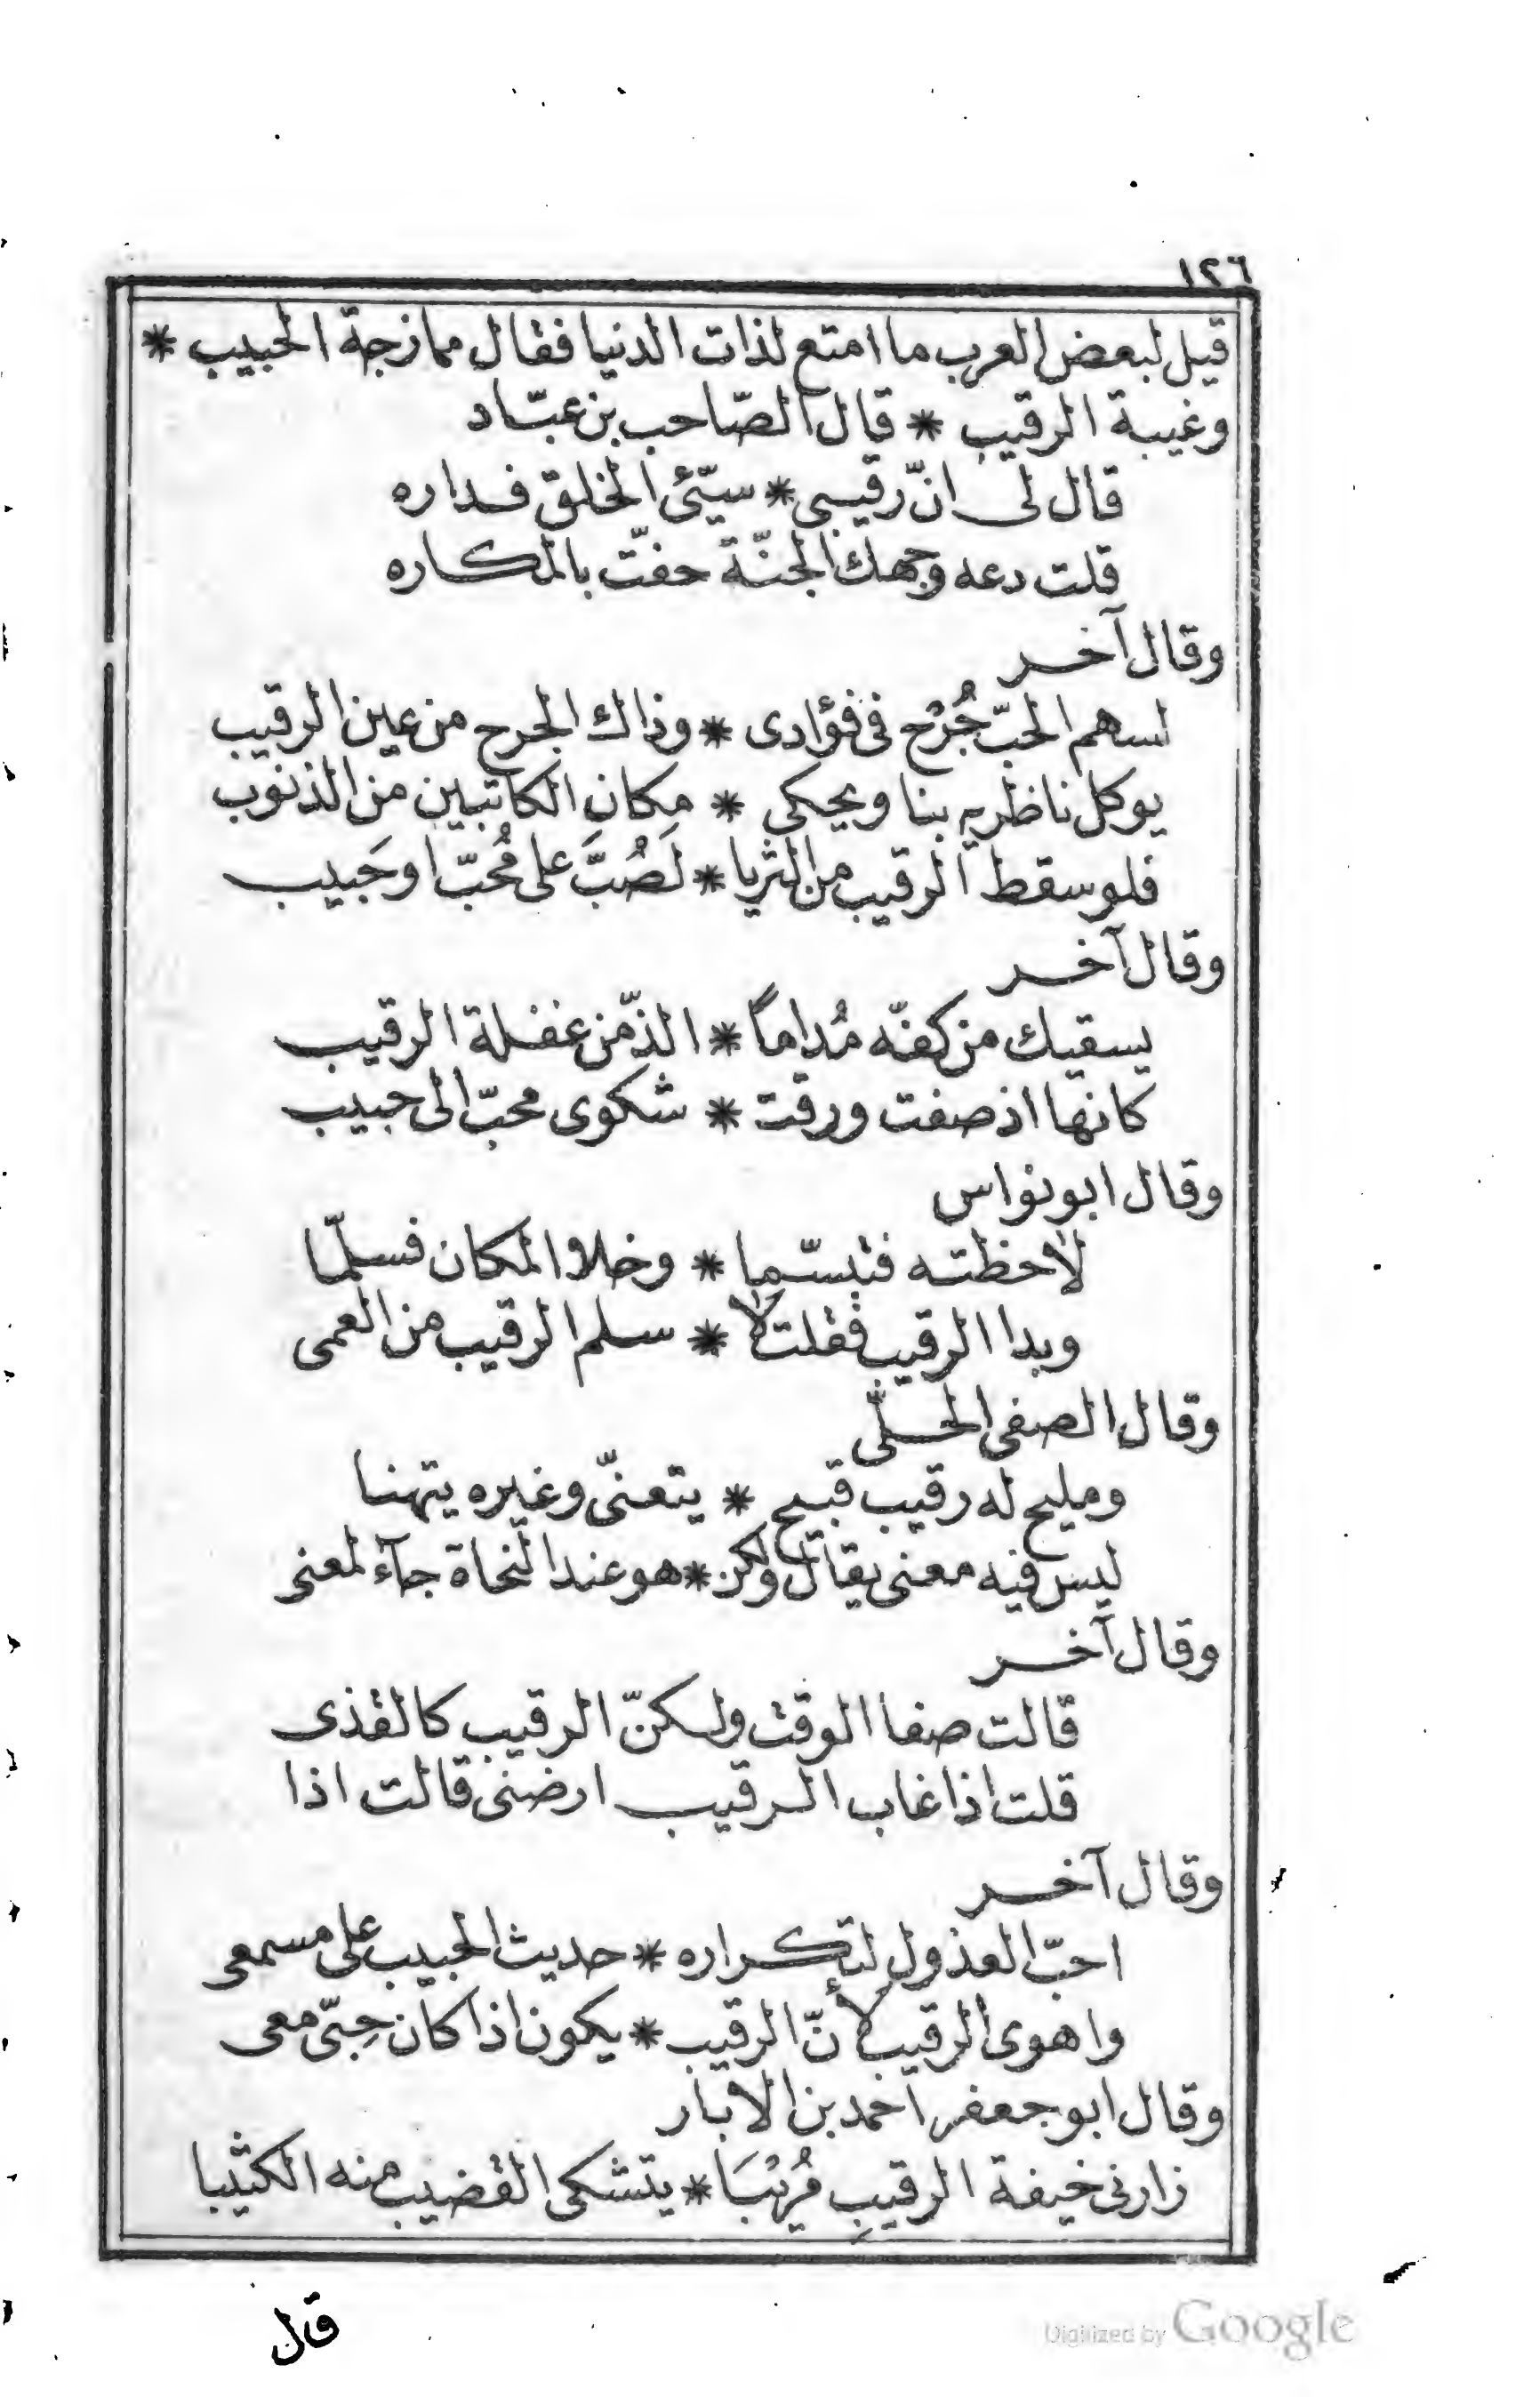 ١٢٦
قيل لبعض العرب ما امتع لذات الدنيا فقال ممازجة الحبيب *
وغيبة الرقيب * قال الصّاحب بن عبّاد
قال لى انّ رقيبى * سيّئ الخلق فداره
قلت دعه وجهك الجنّة حفّت بالمكاره
وقال آخر
لسهم الحبّ جُرْح فى فؤادى * وذاك الجرح من عين الرقيب
يوكل ناظريه بنا ويحكى * مكان الكاتبين من الذنوب
فلو سقط الرقيب من الثريا * لَصُبَّ على مُحبّ او حَبيب
وقال آخر
يسقيك من كفّه مُداماً * الذّ من غفلة الرقيب
كانها اذ صفت ورقت * شكوى محبّ الى حبيب
وقال ابو نواس
لاحظته فتبسّما * وخلا المكان فسلّما
وبدا الرقيب فقلت لا * سلم الرقيب من العمى
وقال الصفى الحلّى
ومليح له رقيب قبيح * يتعنّى وغيره يتهنا
ليس فيه معنى يقال ولكن * هو عند النحاة جآء لمعنى
وقال آخر
قالت صفا الوقت ولكنّ الرقيب كالقذى
قلت اذا غاب الرقيب ارضنى قالت اذا
وقال آخر
احبّ العذول لتكراره * حديث الحبيب على مسمعى
واهوى الرقيب لأنّ الرقيب * يكون اذا كان حِبّى معى
وقال ابو جعفر احمد بن الابار
زارنى خيفة الرقيبِ مُرِيْبَا * يتشكى القضيب منه الكثيبا
قال
Digitized by Google